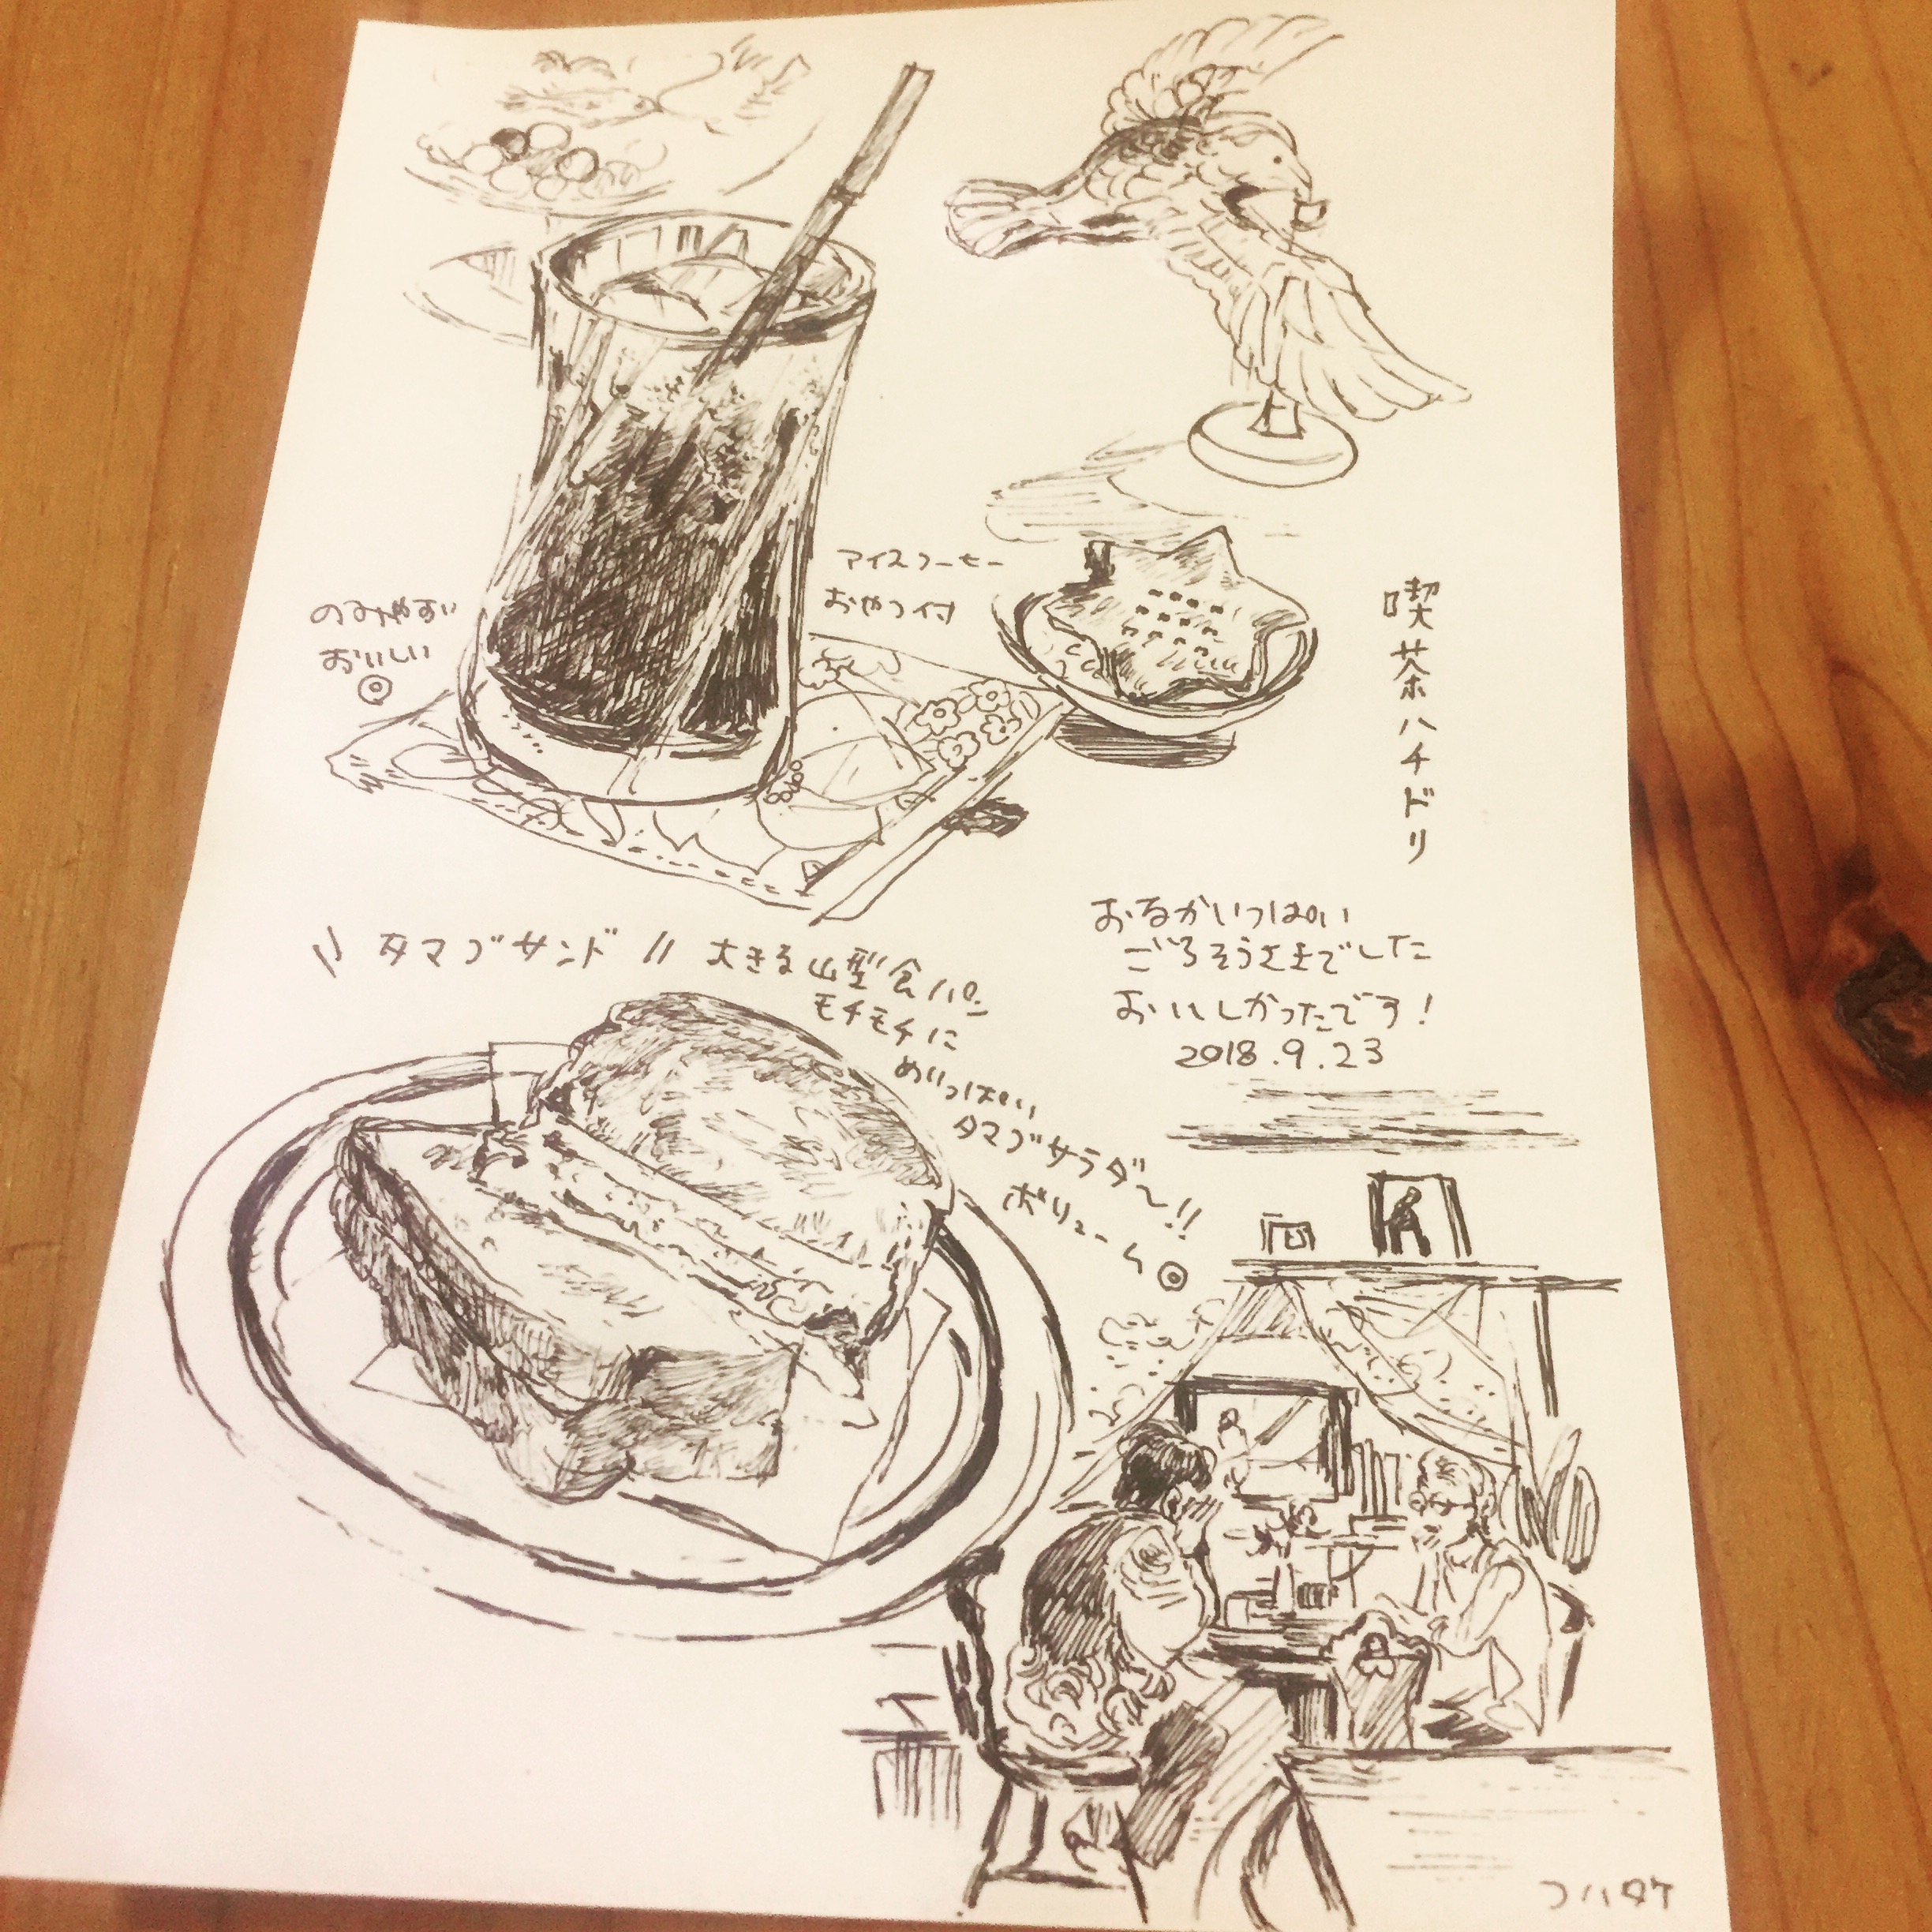 アイスコーヒー
おやつ付
のみやすい
おいしい
◎
喫茶ハチドリ
おなかいっぱい
ごちそうさまでした
おいしかったです!
2018.9.23
〃タマゴサンド〃
大きな山型食パン
モチモチに
めいっぱい
タマゴサラダ〜!!
ボリューム◎
コハタケ